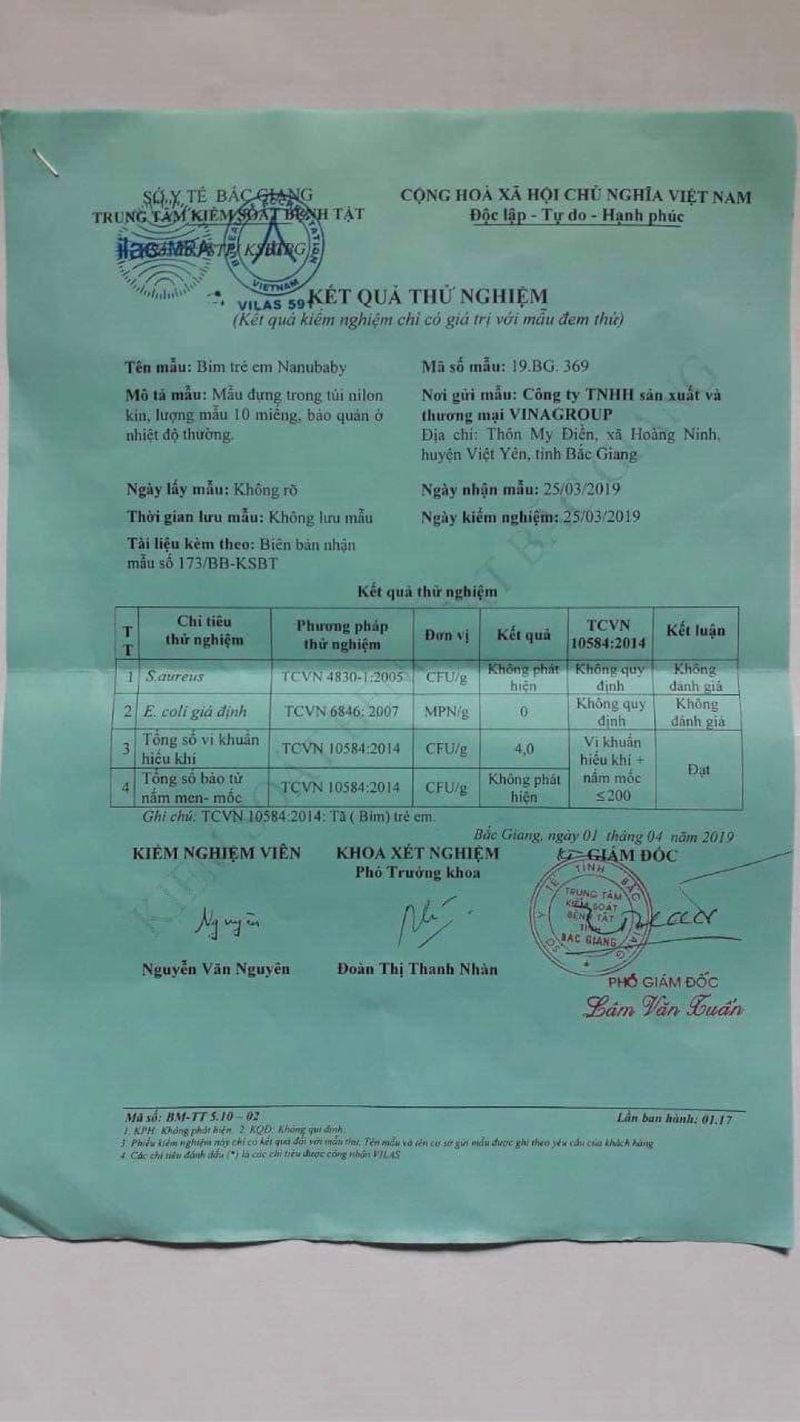 SỞ Y TẾ BẮC GIANG
TRUNG TÂM KIỂM SOÁT BỆNH TẬT
ilac-MRA
VIETNAM
VILAS 591
CỘNG HOÀ XÃ HỘI CHỦ NGHĨA VIỆT NAM
Độc lập - Tự do - Hạnh phúc
KẾT QUẢ THỬ NGHIỆM
(Kết quả kiểm nghiệm chỉ có giá trị với mẫu đem thử)
Tên mẫu: Bỉm trẻ em Nanubaby
Mã số mẫu: 19.BG. 369
Mô tả mẫu: Mẫu đựng trong túi nilon
kín, lượng mẫu 10 miếng, bảo quản ở
nhiệt độ thường.
Nơi gửi mẫu: Công ty TNHH sản xuất và
thương mại VINAGROUP
Địa chỉ: Thôn My Điền, xã Hoàng Ninh,
huyện Việt Yên, tỉnh Bắc Giang
Ngày lấy mẫu: Không rõ
Ngày nhận mẫu: 25/03/2019
Thời gian lưu mẫu: Không lưu mẫu
Ngày kiểm nghiệm: 25/03/2019
Tài liệu kèm theo: Biên bản nhận
mẫu số 173/BB-KSBT
Kết quả thử nghiệm
TT Chỉ tiêu thử nghiệm Phương pháp thử nghiệm Đơn vị Kết quả TCVN 10584:2014 Kết luận
1 S.aureus TCVN 4830-1:2005 CFU/g Không phát hiện Không quy định Không đánh giá
2 E. coli giả định TCVN 6846: 2007 MPN/g 0 Không quy định Không đánh giá
3 Tổng số vi khuẩn hiếu khí TCVN 10584:2014 CFU/g 4,0 Vi khuẩn hiếu khí + nấm mốc ≤200 Đạt
4 Tổng số bào tử nấm men- mốc TCVN 10584:2014 CFU/g Không phát hiện
Ghi chú: TCVN 10584:2014: Tã ( Bỉm) trẻ em.
Bắc Giang, ngày 01 tháng 04 năm 2019
KIỂM NGHIỆM VIÊN
KHOA XÉT NGHIỆM
Phó Trưởng khoa
GIÁM ĐỐC
TRUNG TÂM
KIỂM SOÁT
BỆNH TẬT
TỈNH
BẮC GIANG
Nguyên
Nguyễn Văn Nguyên
Đoàn Thị Thanh Nhàn
PHÓ GIÁM ĐỐC
Lâm Văn Tuấn
Mã số: BM-TT 5.10 – 02
Lần ban hành: 01.17
1. KPH: Không phát hiện. 2. KQĐ: Không qui định.
3. Phiếu kiểm nghiệm này chỉ có kết quả đối với mẫu thử. Tên mẫu và tên cơ sở gửi mẫu được ghi theo yêu cầu của khách hàng
4. Các chỉ tiêu đánh dấu (*) là các chỉ tiêu được công nhận VILAS